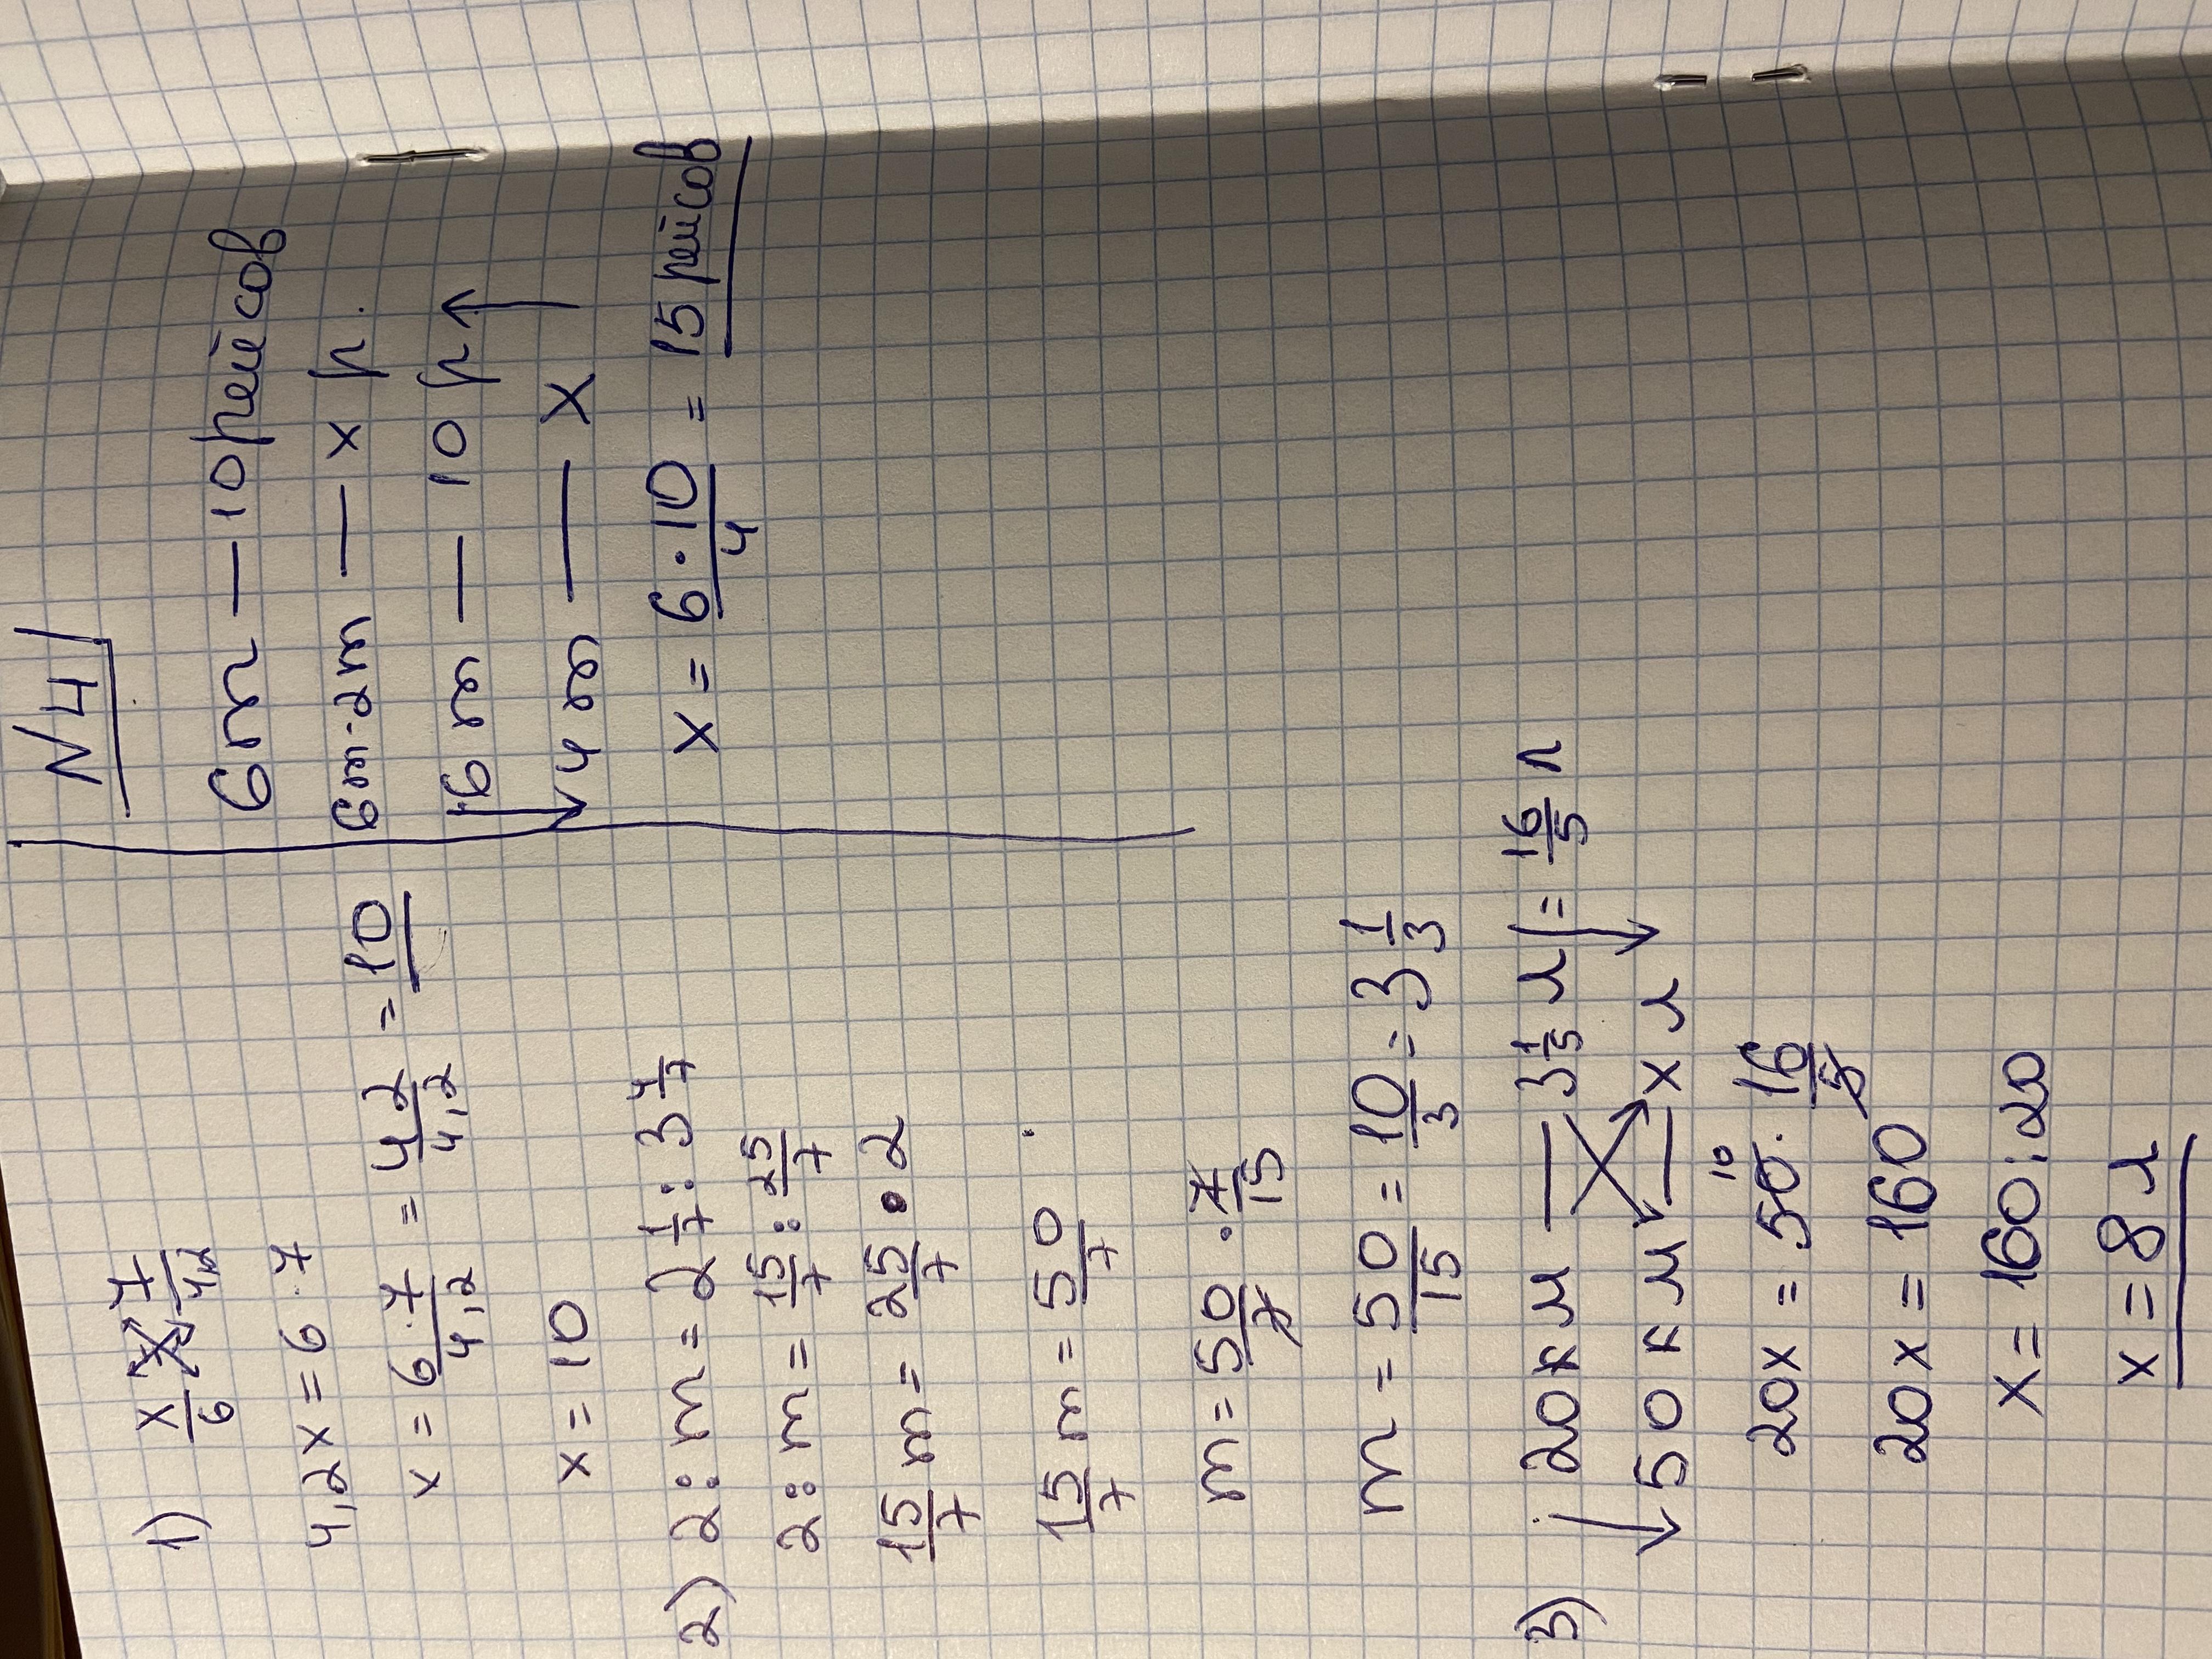 1) x/6 = 7/4,2
4,2x = 6 · 7
x = 6·7/4,2 = 42/4,2 = 10
x = 10
2) 2 : m = 2 1/7 : 3 4/7
2 : m = 15/7 : 25/7
15/7 m = 25/7 · 2
15/7 m = 50/7
m = 50/7 · 7/15
m = 50/15 = 10/3 = 3 1/3
3) 20 км — 3 1/5 л = 16/5 л
50 км — x л
20x = 50 · 16/5
10
20x = 160
x = 160 : 20
x = 8 л
N4
6т — 10 рейсов
6т-2т — x р.
6т — 10 р
4т — x
x = 6·10/4 = 15 рейсов